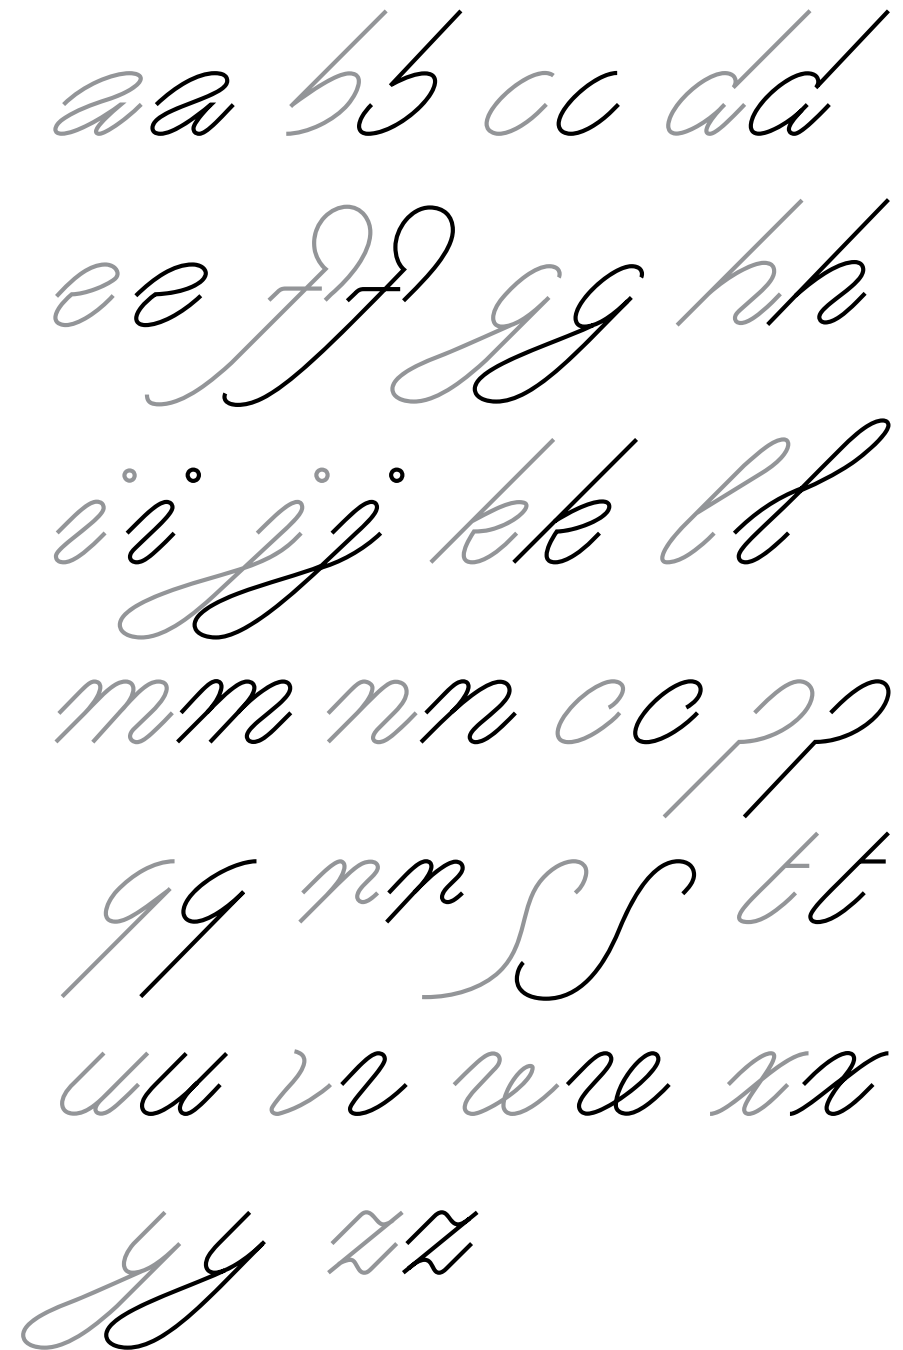 aa bb cc dd
ee ff gg hh
ii jj kk ll
mm nn oo pp
qq rr ss tt
uu vv ww xx
yy zz